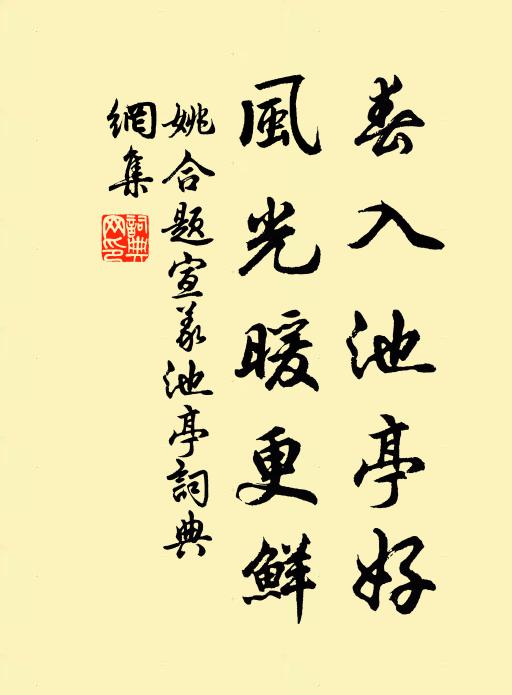 春入池亭好
風光暖更鮮
姚合題宣義池亭詞典
網集
詞典
网印